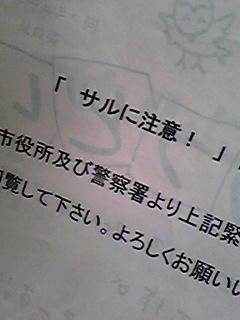 「 サルに注意! 」
市役所及び警察署より上記緊
覧して下さい。よろしくお願いい